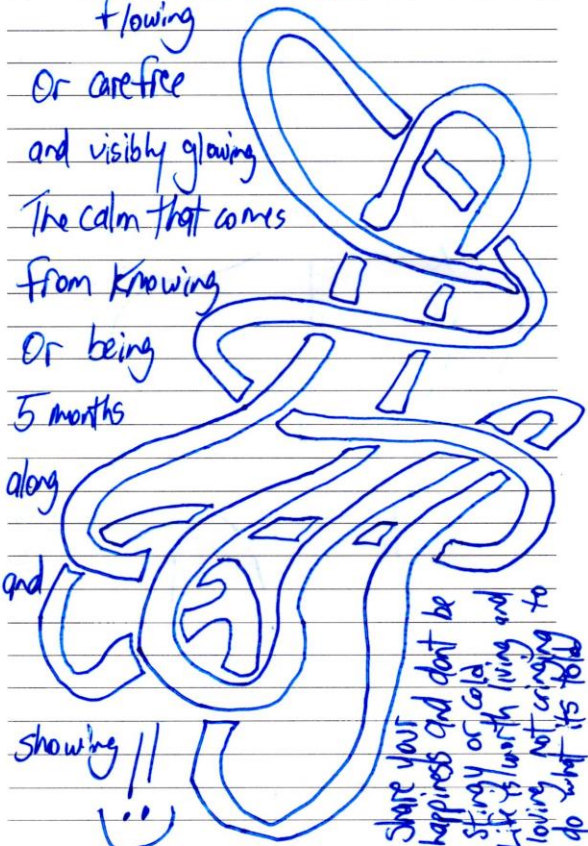 flowing
Or carefree
and visibly glowing
The calm that comes
from knowing
Or being
5 months
along
and
showing!!
Share your
happiness and dont be
stingy or cold
Life is worth living and
loving not cringing to
do what its told